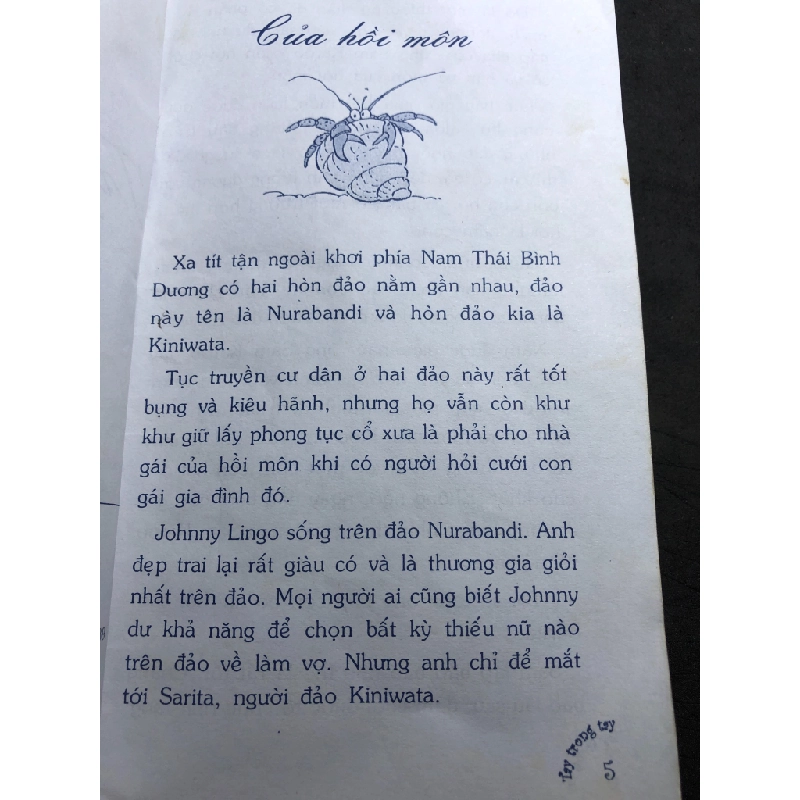 Của hồi môn
Xa tít tận ngoài khơi phía Nam Thái Bình
Dương có hai hòn đảo nằm gần nhau, đảo
này tên là Nurabandi và hòn đảo kia là
Kiniwata.
Tục truyền cư dân ở hai đảo này rất tốt
bụng và kiêu hãnh, nhưng họ vẫn còn khư
khư giữ lấy phong tục cổ xưa là phải cho nhà
gái của hồi môn khi có người hỏi cưới con
gái gia đình đó.
Johnny Lingo sống trên đảo Nurabandi. Anh
đẹp trai lại rất giàu có và là thương gia giỏi
nhất trên đảo. Mọi người ai cũng biết Johnny
dư khả năng để chọn bất kỳ thiếu nữ nào
trên đảo về làm vợ. Nhưng anh chỉ để mắt
tới Sarita, người đảo Kiniwata.
Tay trong tay
5